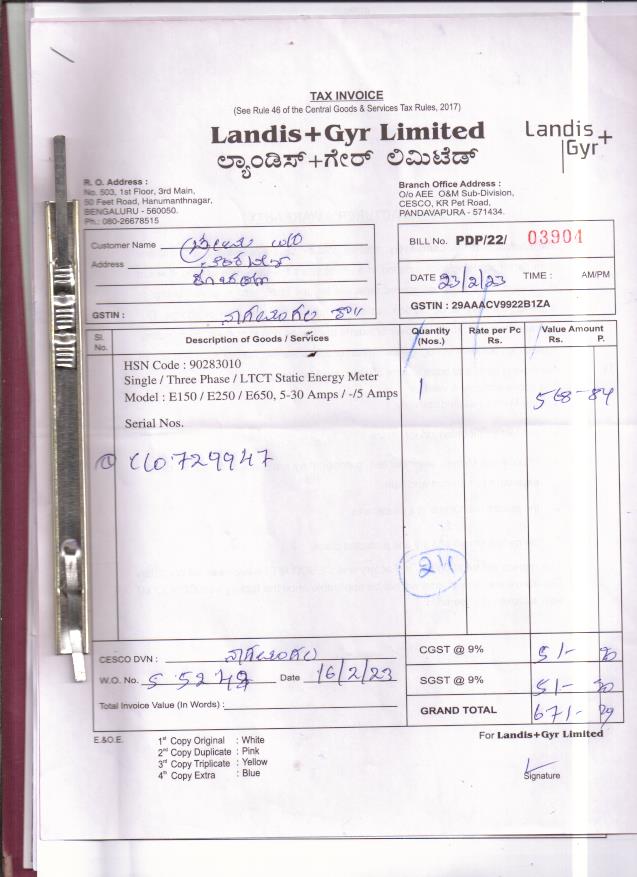 TAX INVOICE
(See Rule 46 of the Central Goods & Services Tax Rules, 2017)
Landis+Gyr Limited
ಲ್ಯಾಂಡಿಸ್+ಗೇರ್ ಲಿಮಿಟೆಡ್
Landis+
Gyr
R. O. Address :
No. 503, 1st Floor, 3rd Main,
50 Feet Road, Hanumanthnagar,
BENGALURU - 560050.
Ph.: 080-26678515
Branch Office Address :
O/o AEE O&M Sub-Division,
CESCO, KR Pet Road,
PANDAVAPURA - 571434.
Customer Name
Address
GSTIN : ನಾಗಮಂಗಲ
BILL No. PDP/22/ 03904
DATE 23/2/23 TIME : AM/PM
GSTIN : 29AAACV9922B1ZA
Sl. No. Description of Goods / Services Quantity (Nos.) Rate per Pc Rs. Value Amount Rs. P.
HSN Code : 90283010
Single / Three Phase / LTCT Static Energy Meter
Model : E150 / E250 / E650, 5-30 Amps / -/5 Amps 1 568-84
Serial Nos.
729947
CESCO DVN : ನಾಗಮಂಗಲ
W.O. No. Date 16/2/23
Total Invoice Value (In Words) :
CGST @ 9% 51-
SGST @ 9% 51-
GRAND TOTAL 671-
E.&O.E.
1st Copy Original : White
2nd Copy Duplicate : Pink
3rd Copy Triplicate : Yellow
4th Copy Extra : Blue
For Landis+Gyr Limited
Signature